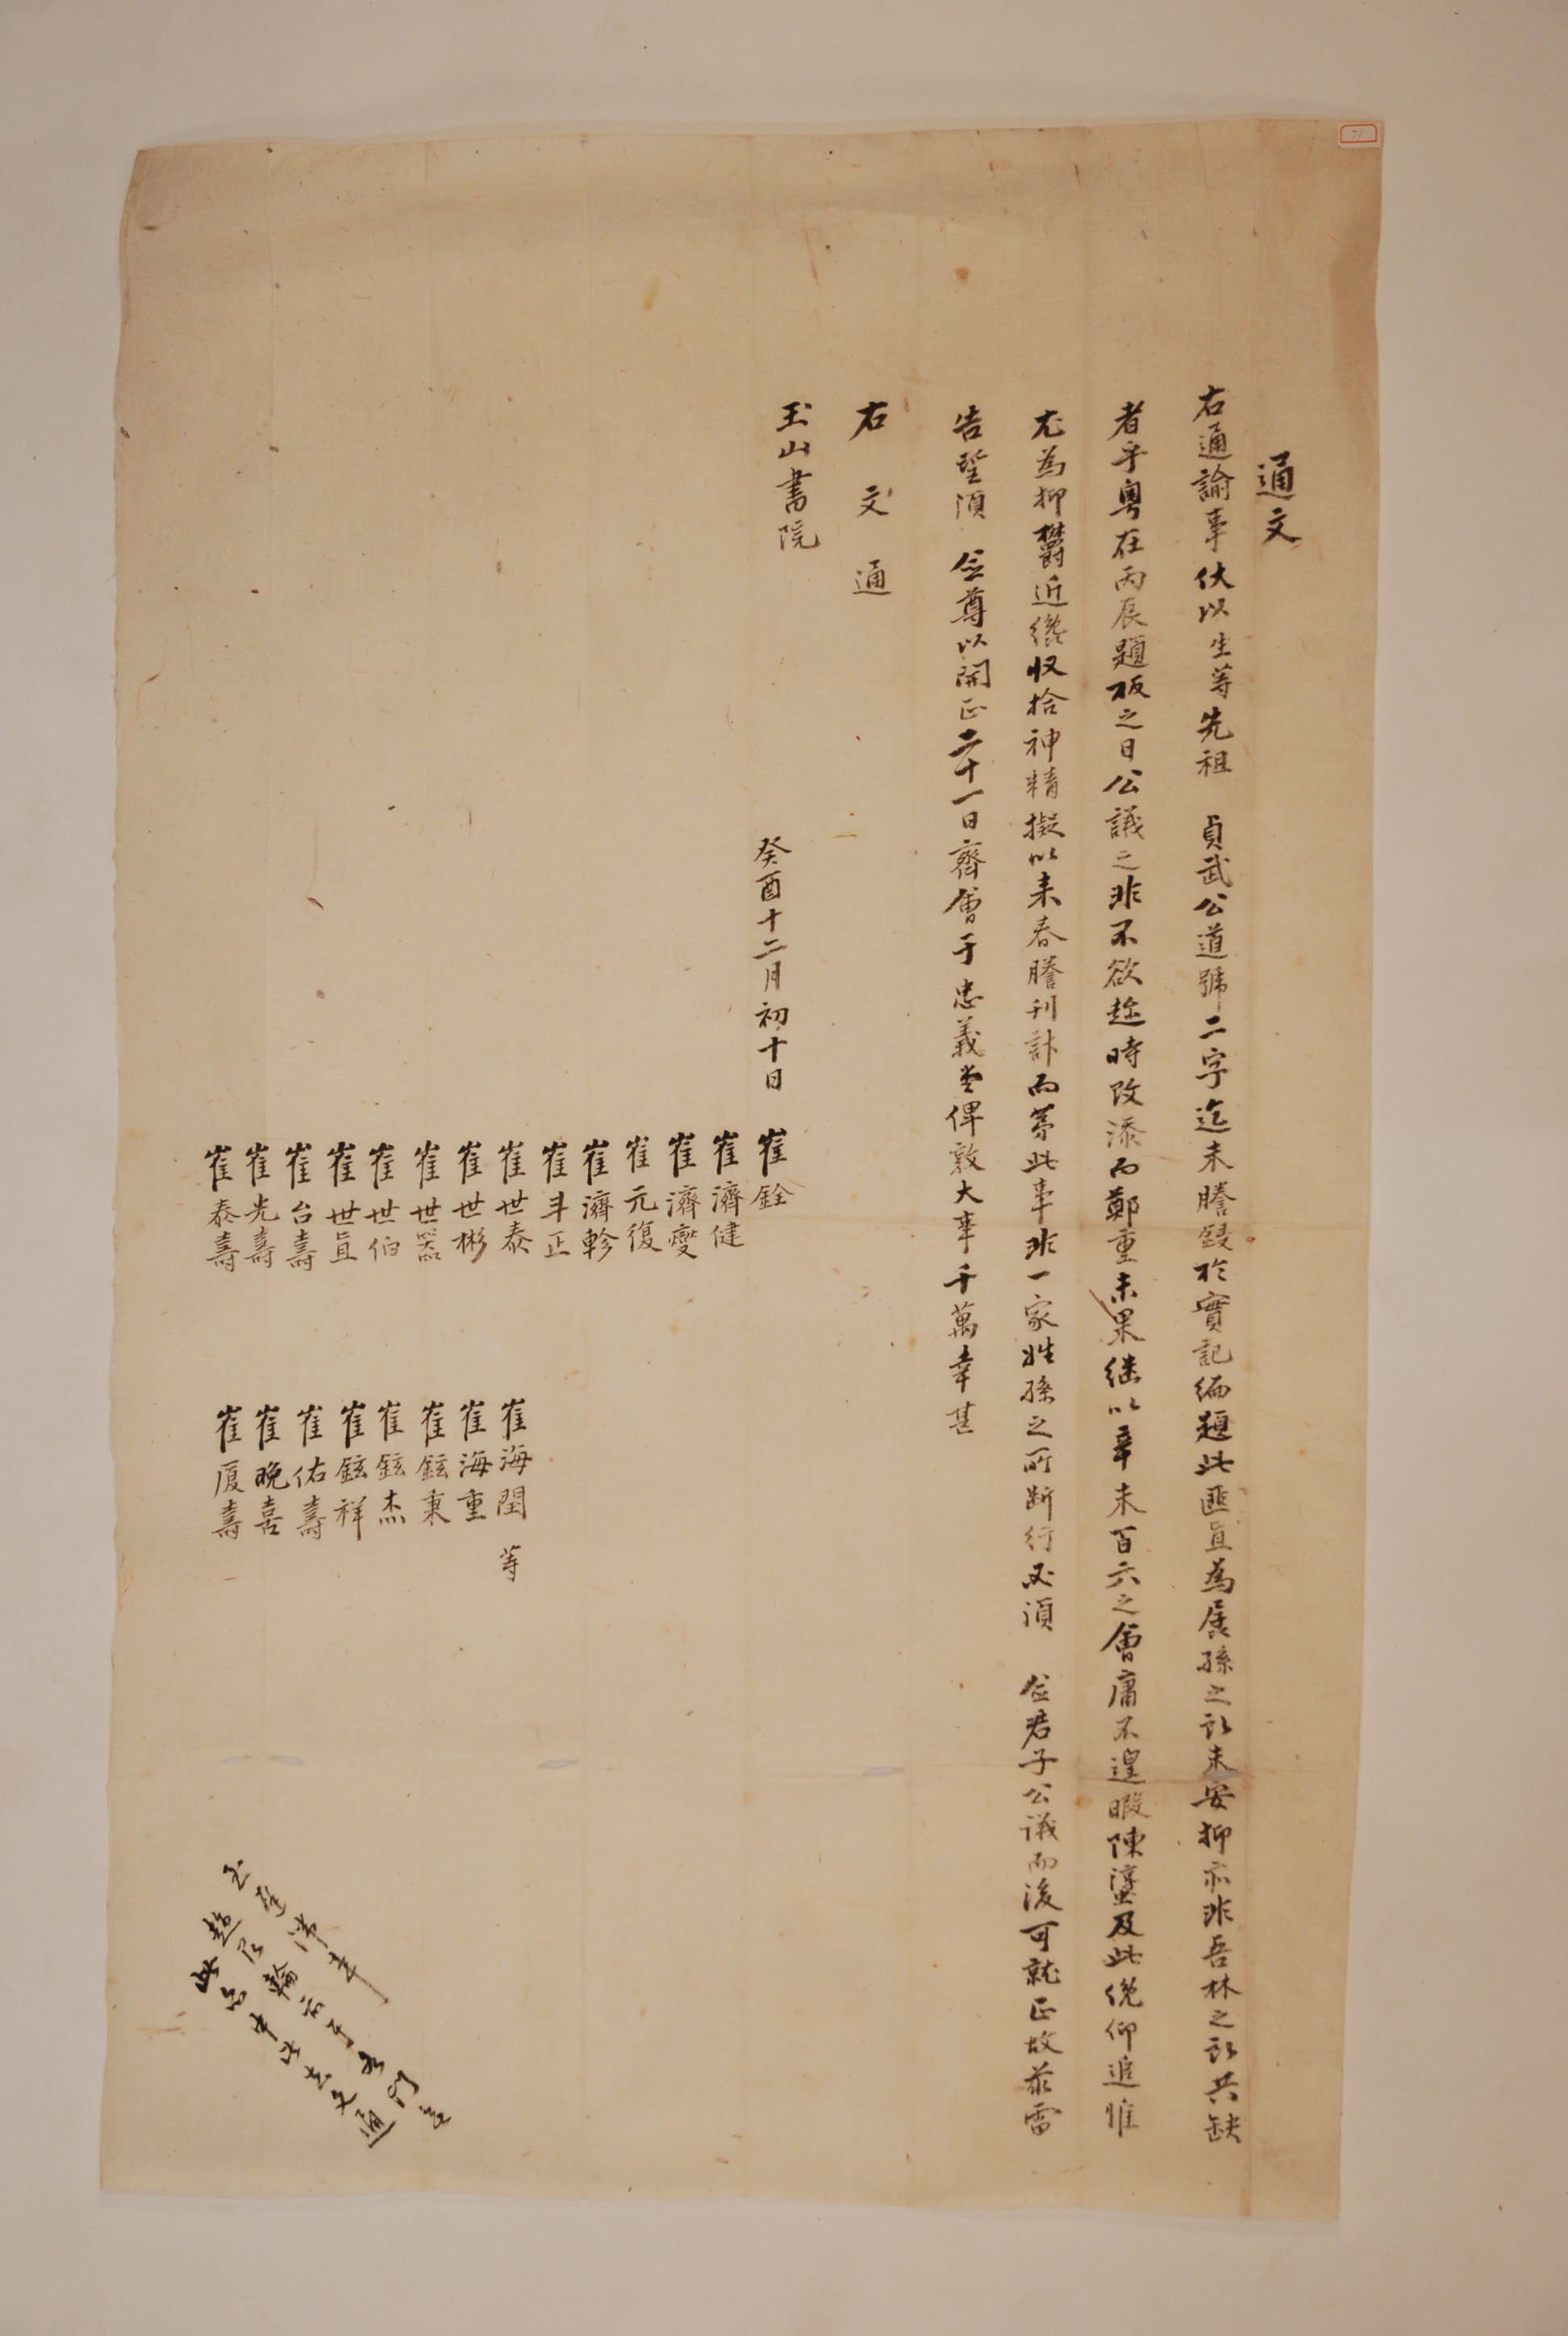 71
通文
右通諭事伏以生等先祖 貞武公道號二字迄未謄鋟於實記緬題此匪直為孱孫之訟未安抑亦非吾林之訟共缺
者乎粵在丙辰題板之日公議之非不欲趁時改添而鄭重未果継以辛未百六之會庸不遑暇陳瀆及此俛仰追惟
尤為抑欝近纔収拾神精擬以来春謄刊訃而第此事非一家姓孫之所斷行必須 僉君子公議而後可就正故茲雷
告望須 僉尊以開正二十一日齊會于忠義堂俾敦大事千萬幸甚
右文通
玉山書院
癸酉十二月初十日 崔銓
崔濟健
崔濟燮
崔元復
崔濟軫
崔斗正
崔世泰
崔世彬
崔世器
崔世伯
崔世直
崔台壽
崔光壽
崔泰壽
崔海閏 等
崔海重
崔鉉秉
崔鉉杰
崔鉉祥
崔佑壽
崔晩喜
崔厦壽